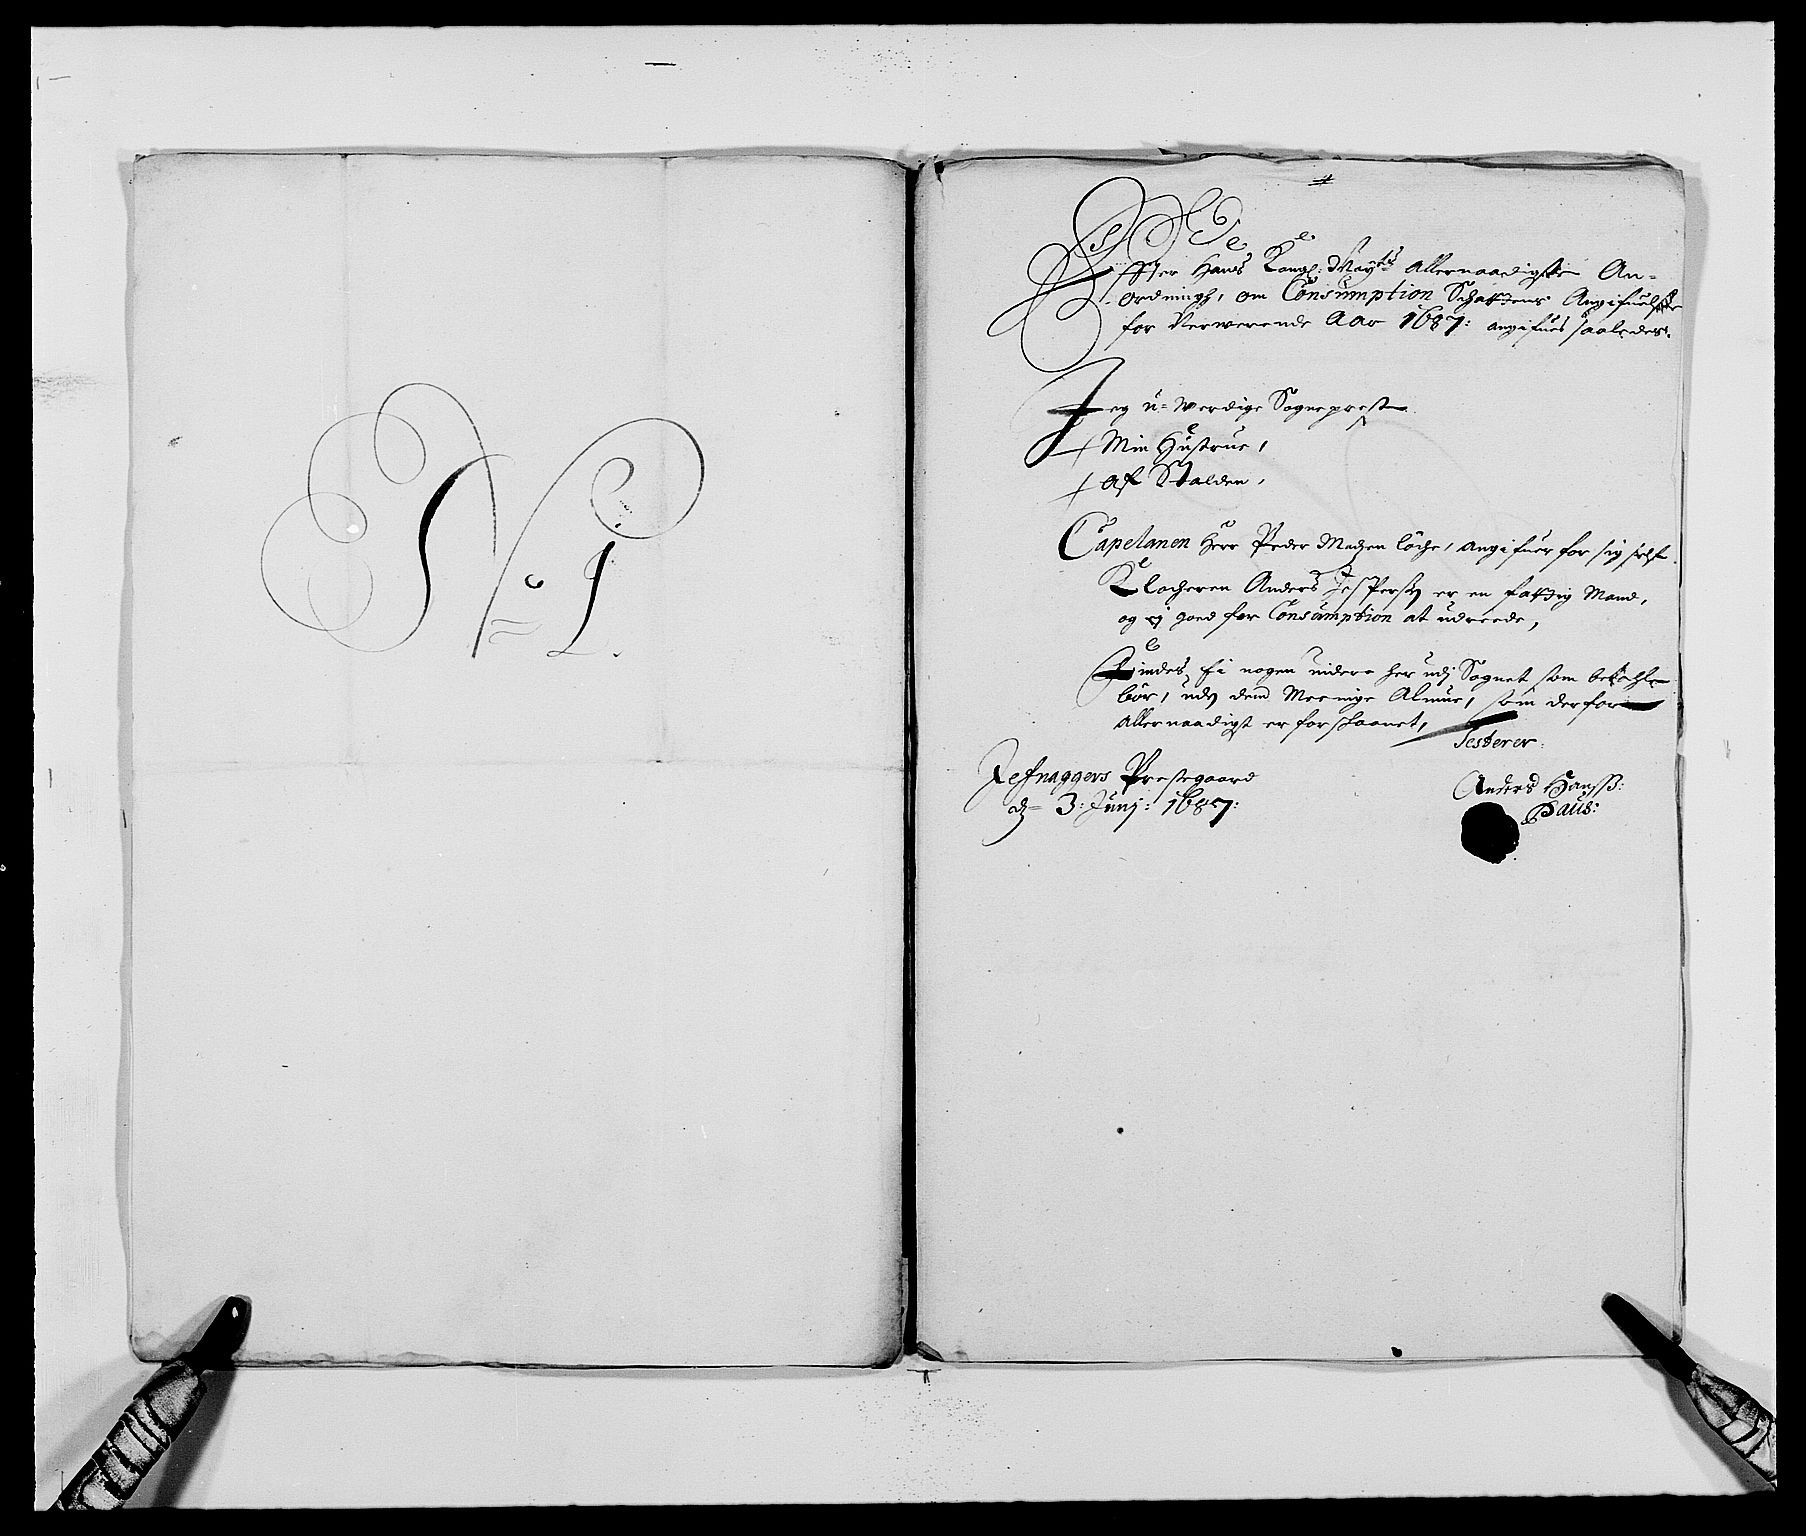 No 1.
Effter Hans Kongl: Mayts Allernaadigste An-
ordningh, om Consumption Schattens Angifuelse
for Nerwerende Aar 1687: angifues saaledes.
Jeg u-werdige Sogneprest
Min Hustrue,
Af Stalden,
Capelanen Herr Peder Madzen löche, angifuer for sig self.
Klocheren Anders Jespersen er en fattig Mand,
og ej goed for Consumption at udreede,
Findes ei nogen videre her udj Sognet som betahle
bör, uden dend Meenige Almue, som derfor
Allernaadigst er forschaanet,
Testerer
Refnaggers Prestegaard
d= 3: Junj: 1687:
Anders Hanss:
Paus: